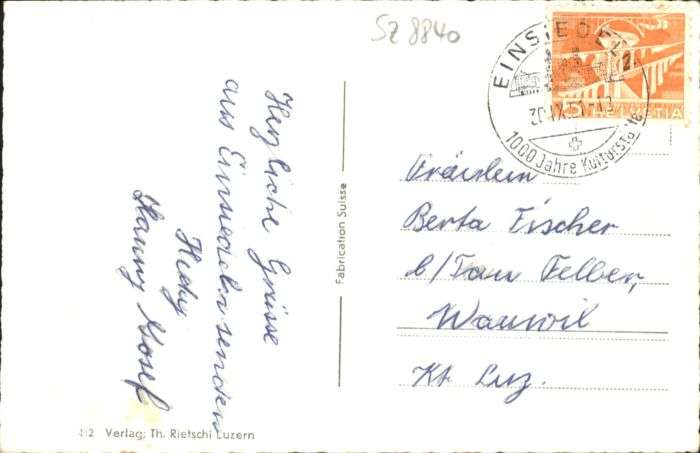 SZ 8840
EINSIEDELN
20.IX.51-13
1000 Jahre Kulturstätte
5 HELVETIA
Herzliche Grüsse
aus Einsiedeln senden
Hedy
Hanny Josef
Fabrication Suisse
Fräulein
Berta Fischer
b/Fam Felber,
Wauwil
Kt. Luz.
412 Verlag: Th. Rietschi Luzern